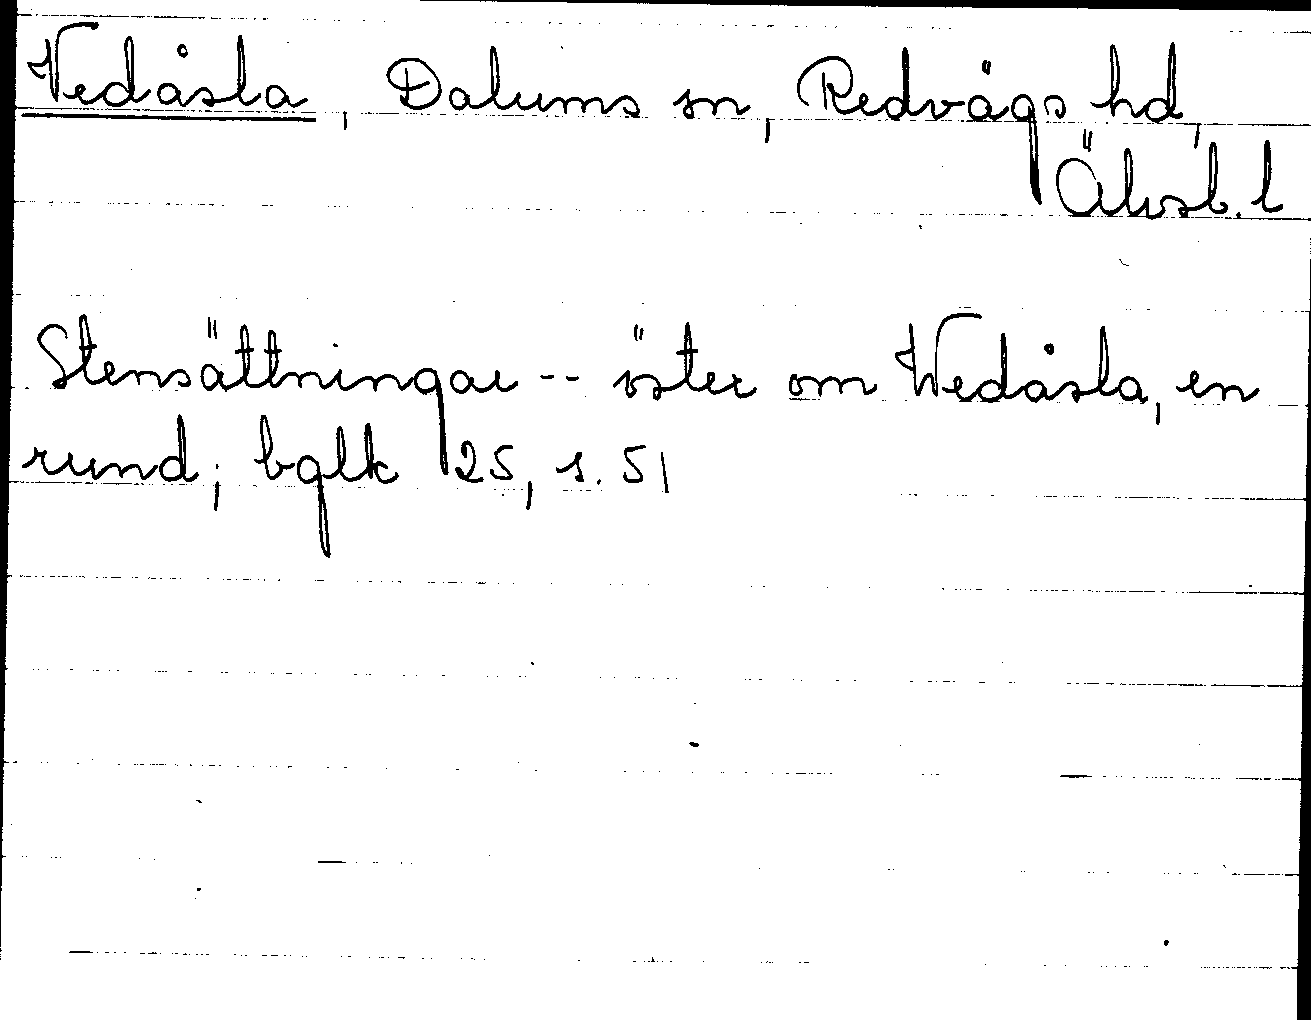 Vedåsla, Dalums sn, Redvägs hd,
Älvsb. l
Stensättningar -- öster om Wedåsla, en
rund; bglk 25, s. 51